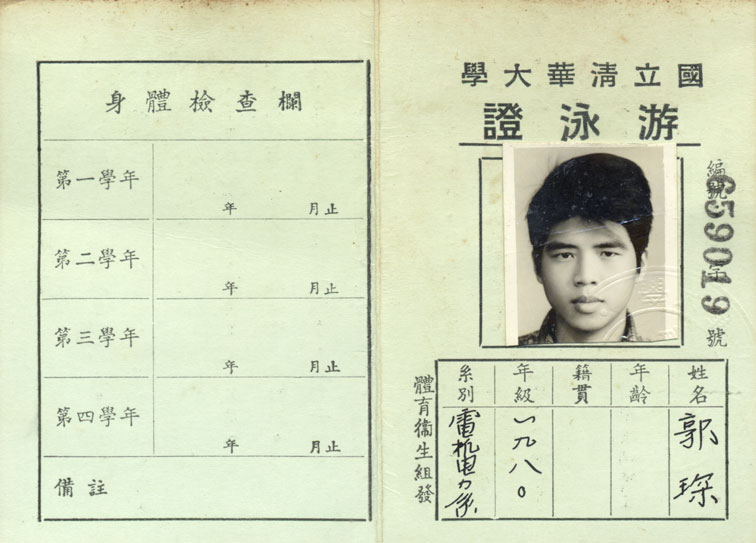 國立清華大學
游泳證
編號 字 號
659019
姓名
郭琛
年齡
籍貫
年級
一九八〇
系別
電机电力系
體育衞生組發
身體檢查欄
第一學年
年 月止
第二學年
年 月止
第三學年
年 月止
第四學年
年 月止
備註